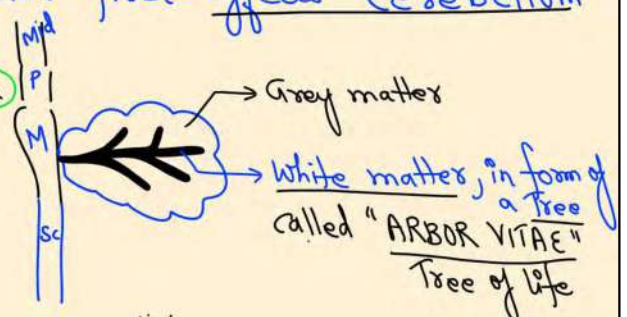 Cerebellum
Mid
P
M
Sc
Grey matter
White matter, in form of
a Tree
called "ARBOR VITAE"
Tree of life